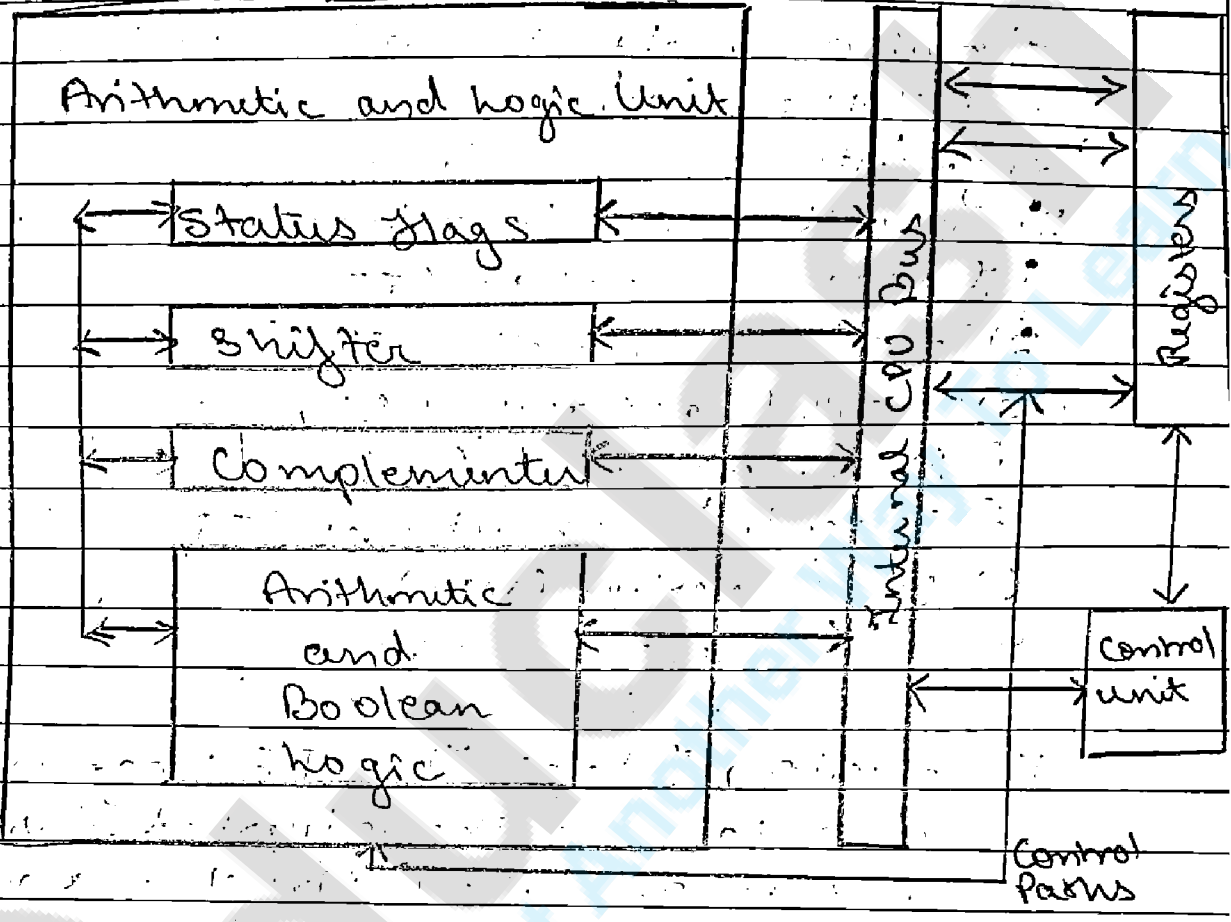 Arithmetic and Logic Unit
Status Flags
Shifter
Complementer
Arithmetic
and
Boolean
Logic
Internal CPU Bus
Registers
Control
unit
Control
Paths
Another Way To Learn